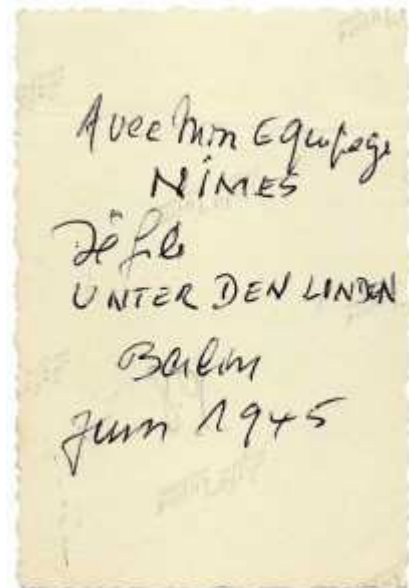 Avec mon Equipage
NÎMES
Défile
UNTER DEN LINDEN
Berlin
Juin 1945